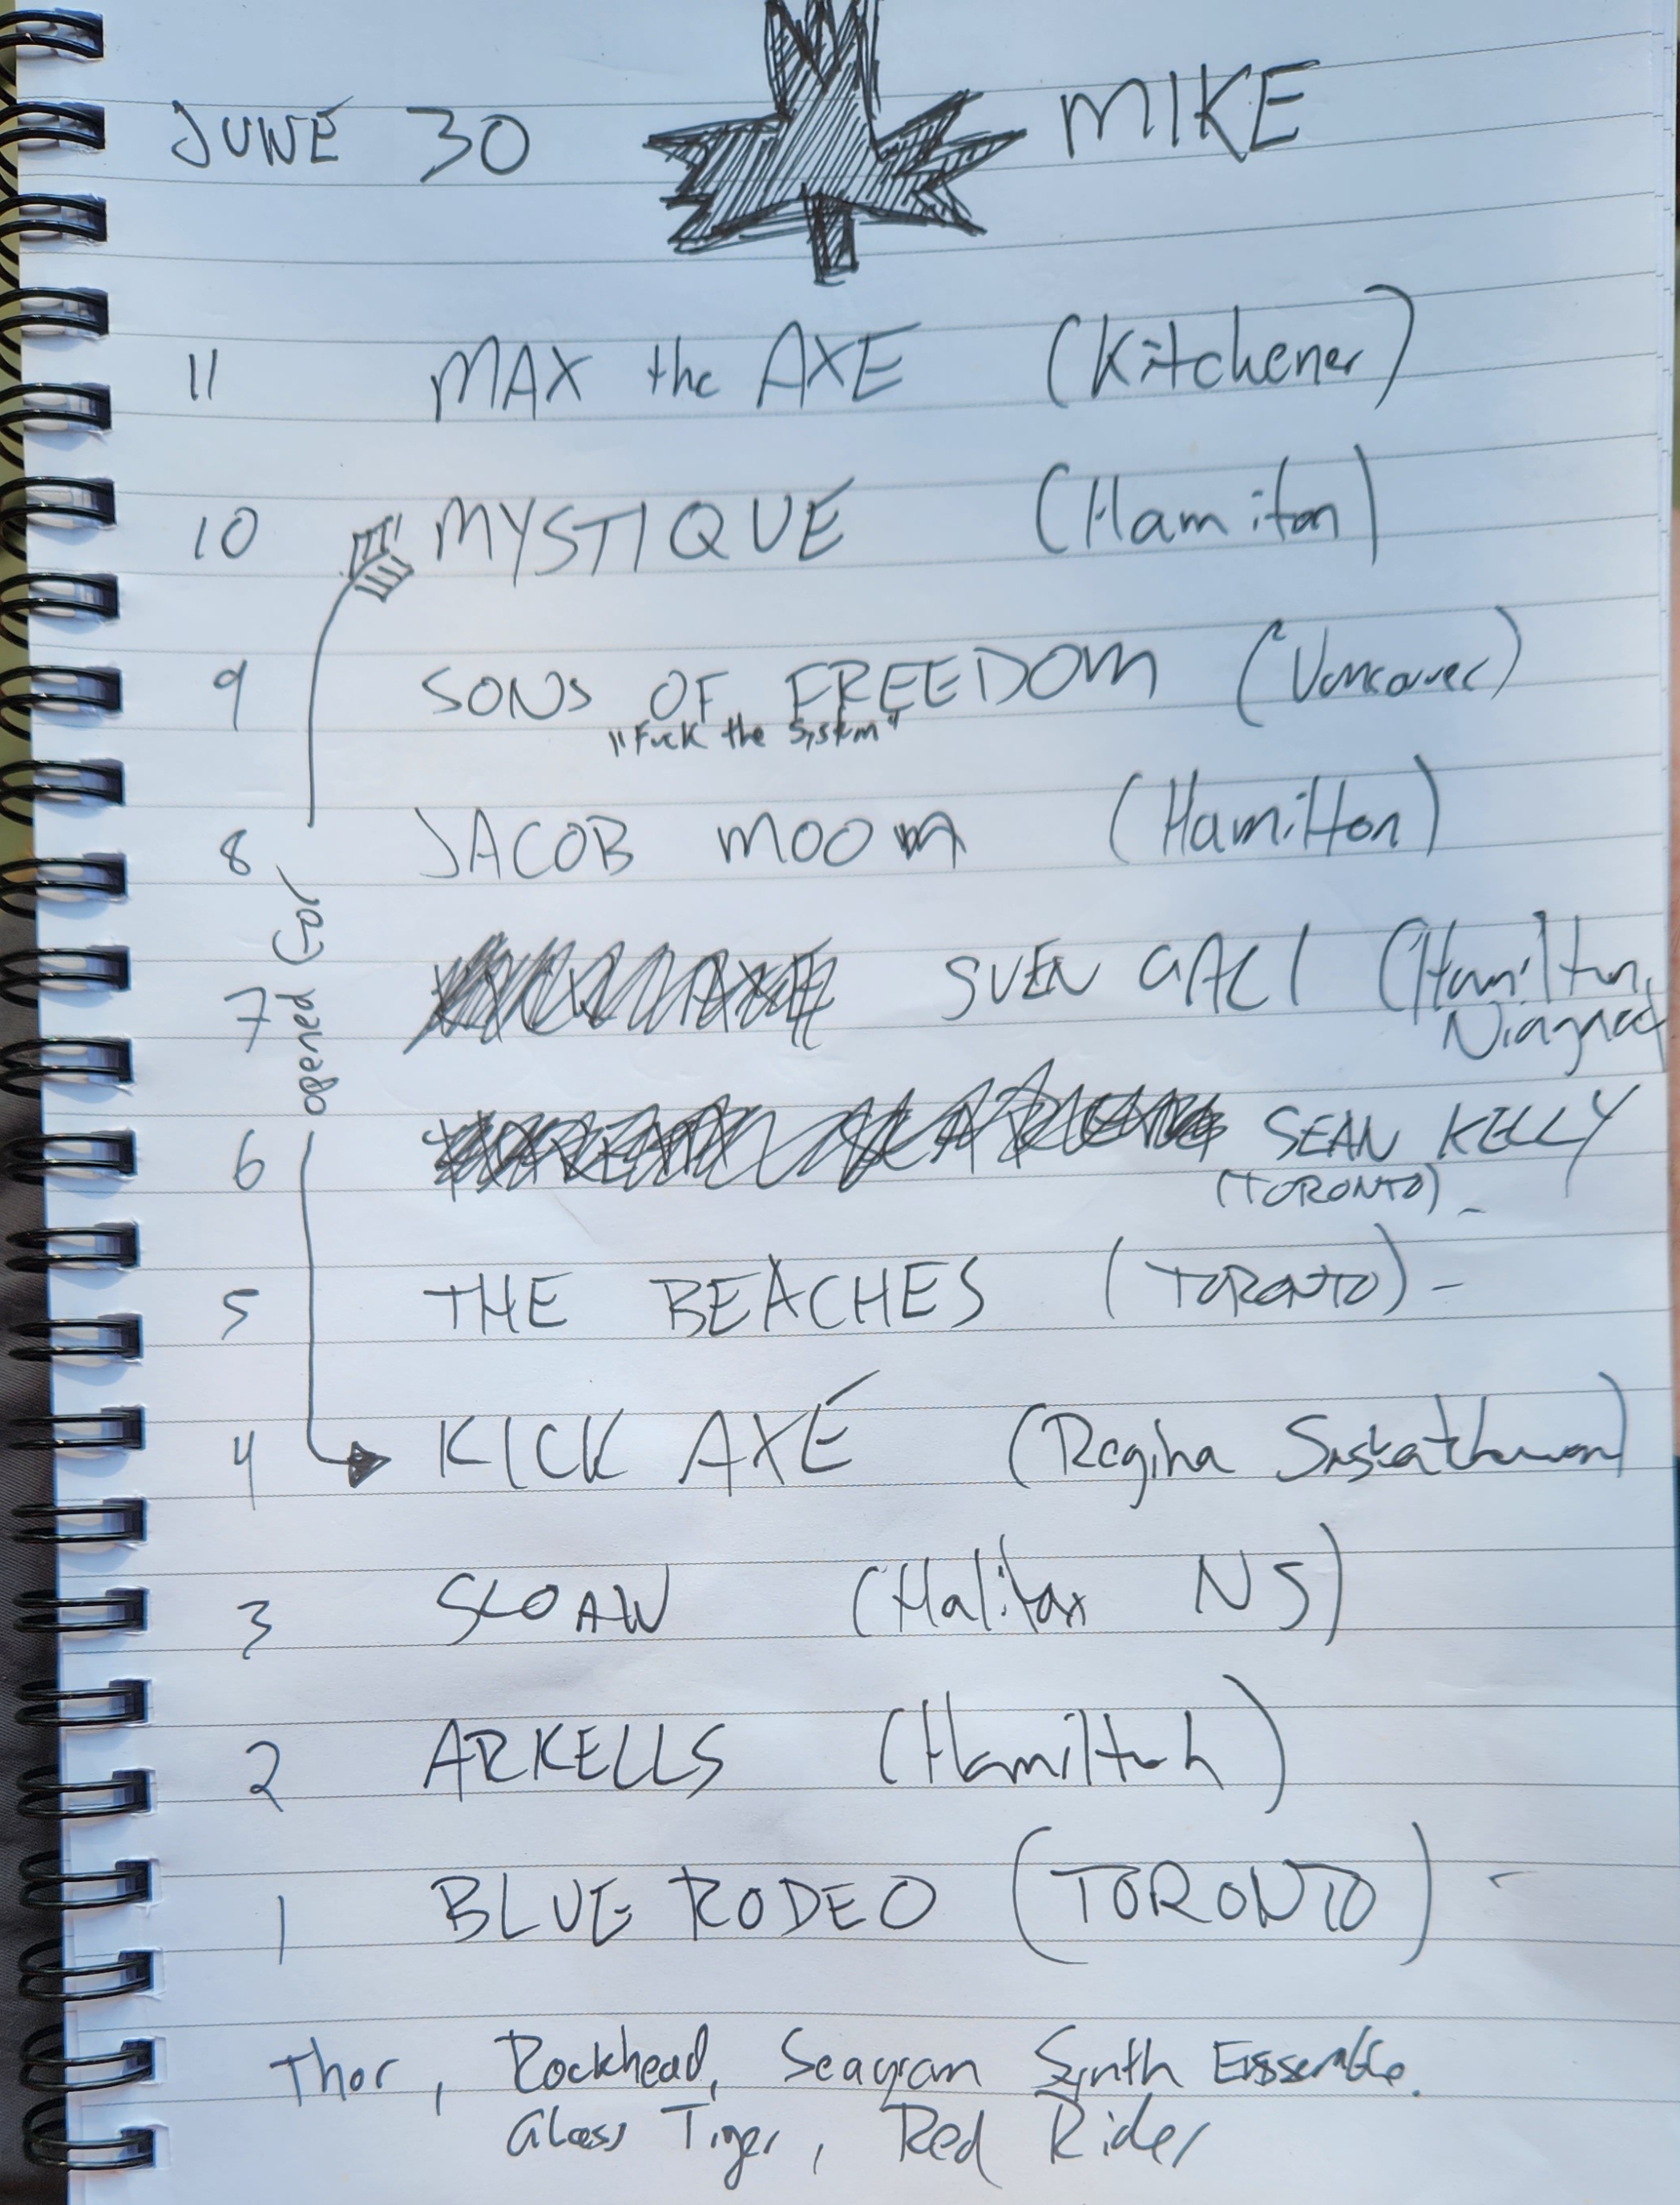 JUNE 30 MIKE
11 MAX the AXE (Kitchener)
10 MYSTIQUE (Hamiton)
9 SONS OF FREEDOM (Vancouver)
"Fuck the System"
8 JACOB MOON (Hamilton)
opened for
7 SVEN GALI (Hamilton, Niagara)
6 SEAN KELLY
(TORONTO) -
5 THE BEACHES (TORONTO) -
4 KICK AXE (Regina Saskatchewan)
3 SLOAN (Halifax NS)
2 ARKELLS (Hamilton)
1 BLUE RODEO (TORONTO) -
Thor, Rockhead, Seagram Synth Ensemble.
Glass Tiger, Red Rider